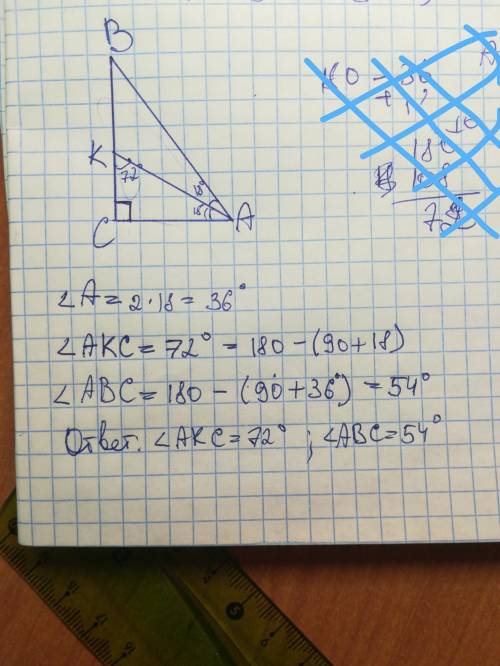 B
K
72
18°
A
C
∠A = 2·18 = 36°
∠AKC = 72° = 180 - (90 + 18)
∠ABC = 180 - (90 + 36°) = 54°
Ответ. ∠AKC = 72° ; ∠ABC = 54°